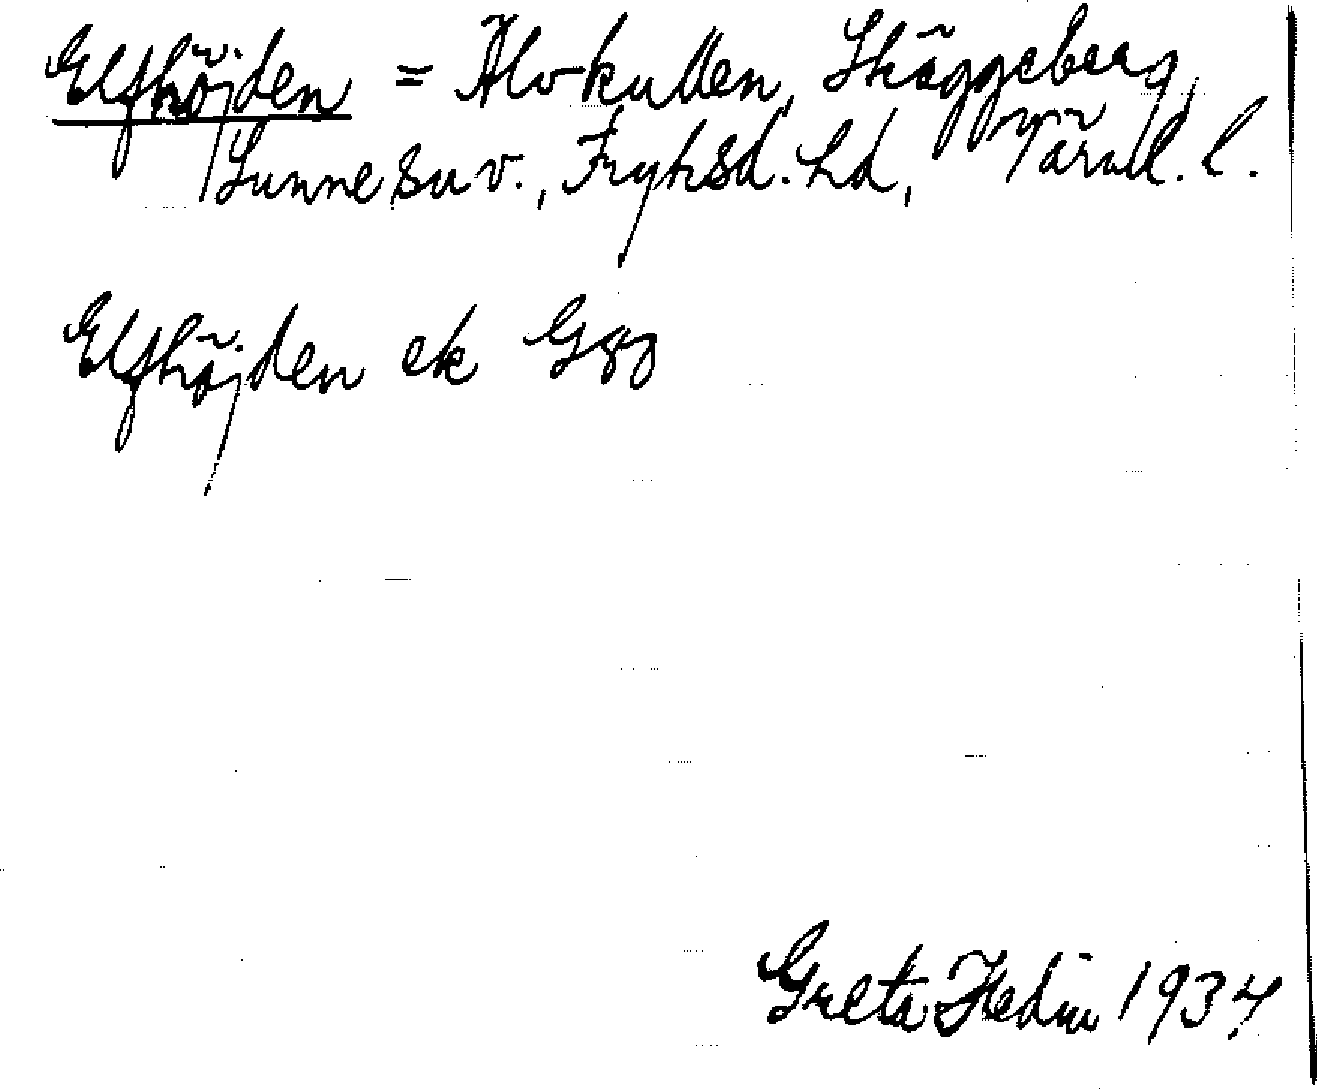 Elfhöjden = Älvkullen, Skäggeberg,
Sunne sn v., Fryksd. hd, Värml. l.
Elfhöjden ek G 80
Greta Hedin 1934